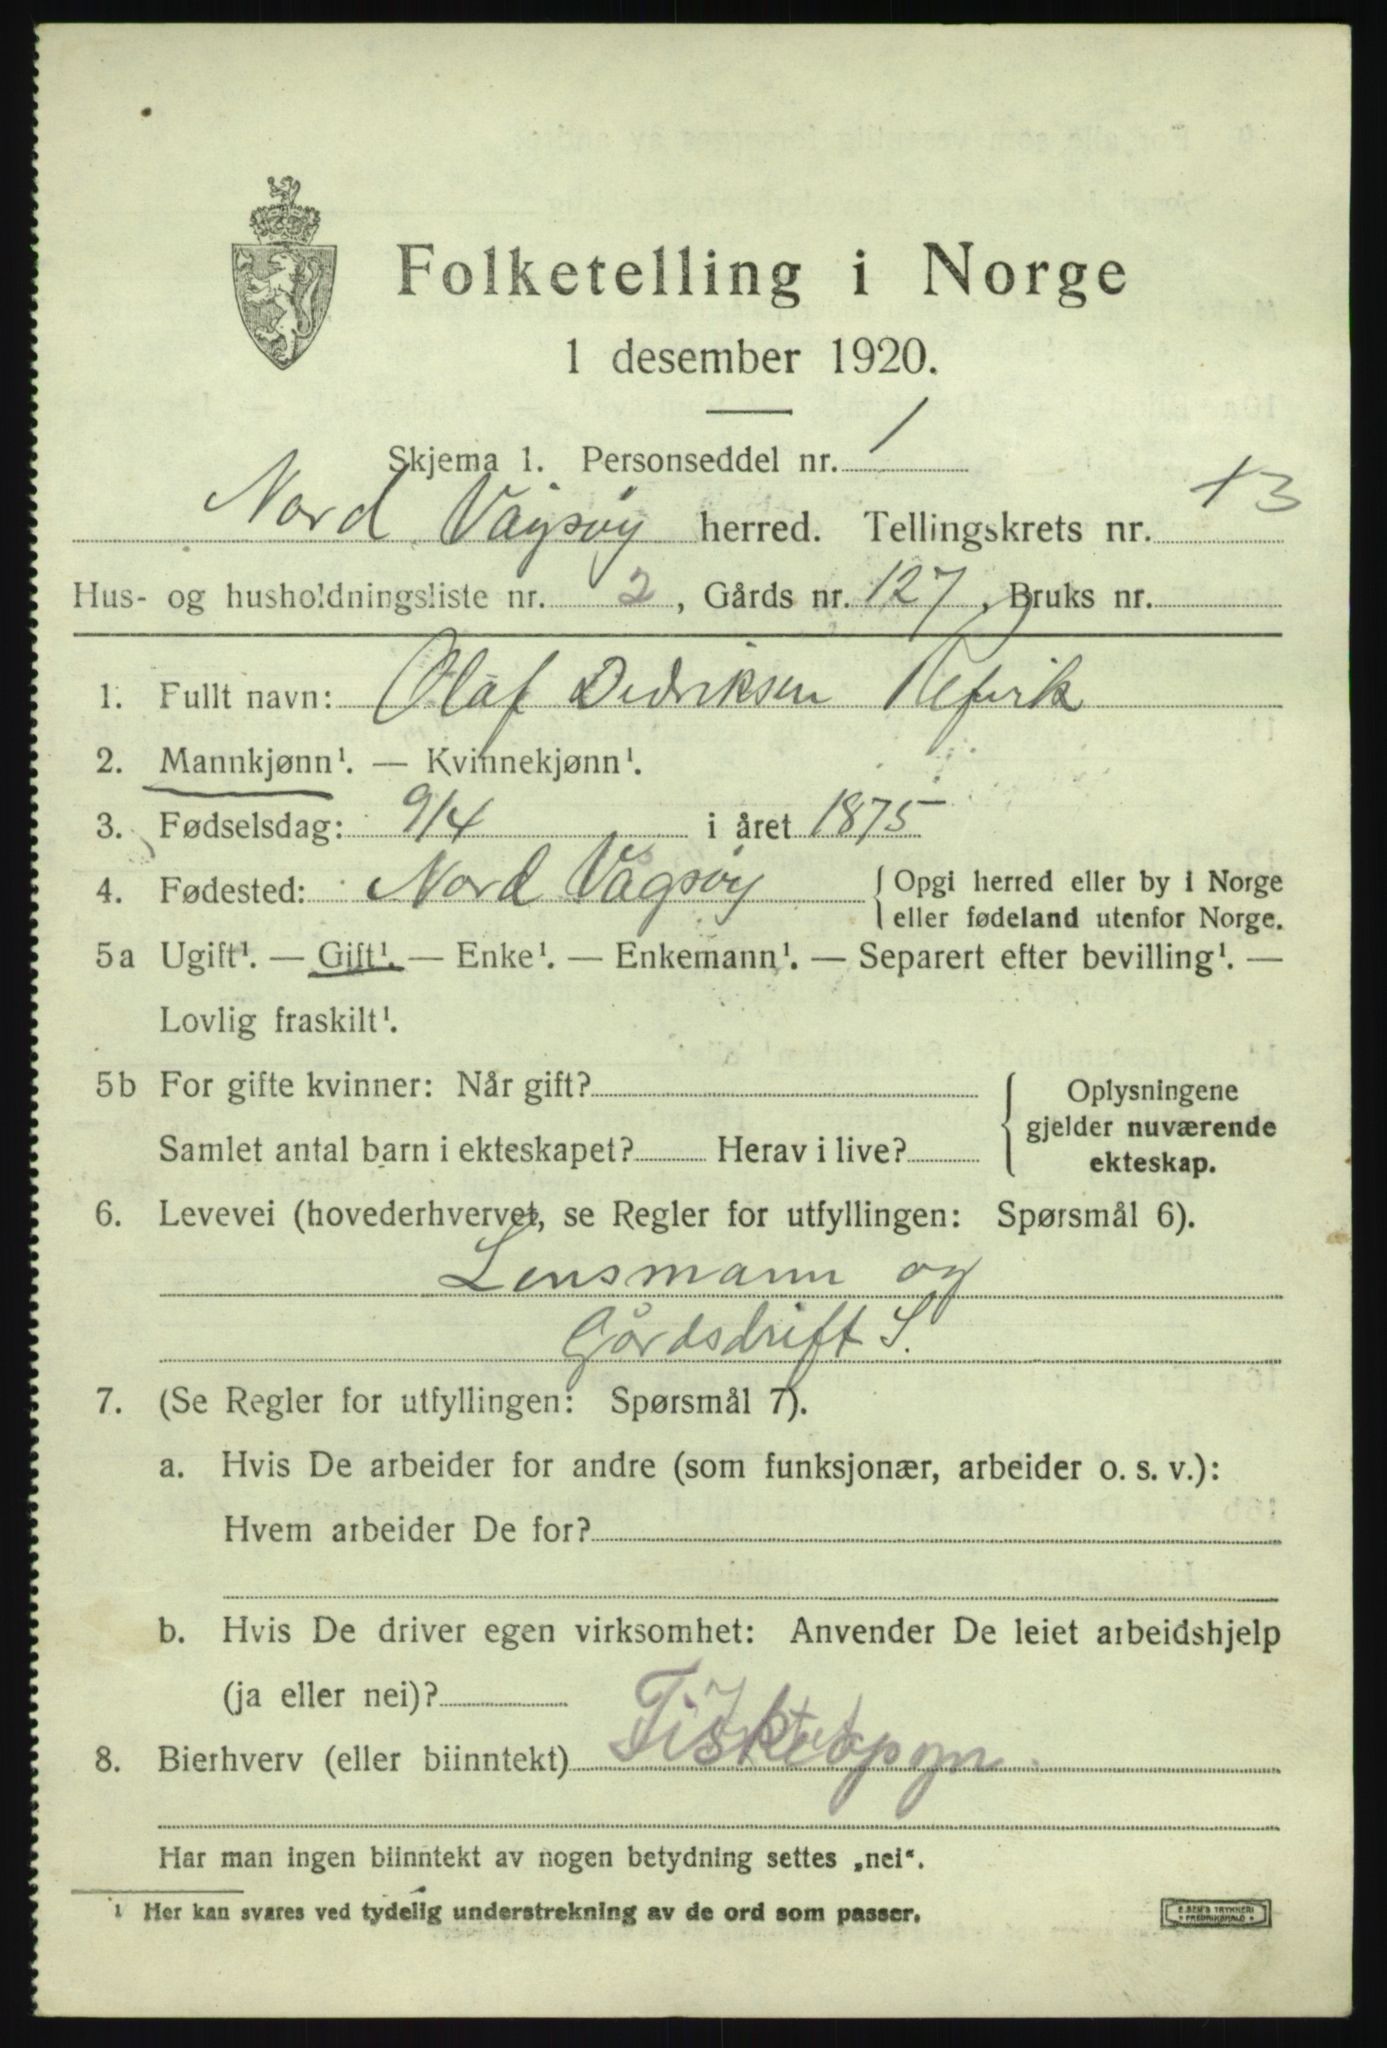 Folketelling i Norge
1 desember 1920.
Skjema 1. Personseddel nr. 1
Nord Vågsøy herred. Tellingskrets nr. 13
Hus- og husholdningsliste nr. 2, Gårds nr. 127, Bruks nr.
1. Fullt navn: Olaf Didriksen Refvik
2. Mannkjønn¹. — Kvinnekjønn¹.
3. Fødselsdag: 9/4 i året 1875
4. Fødested: Nord Vågsøy {Opgi herred eller by i Norge
eller fødeland utenfor Norge.
5a Ugift¹. — Gift¹. — Enke¹. — Enkemann¹. — Separert efter bevilling¹. —
Lovlig fraskilt¹.
5b For gifte kvinner: Når gift? Oplysningene
gjelder nuværende
Samlet antal barn i ekteskapet? Herav i live?
ekteskap.
6. Levevei (hovederhvervet, se Regler for utfyllingen: Spørsmål 6).
Lensmann og
Gårdsdrift S.
7. (Se Regler for utfyllingen: Spørsmål 7).
a. Hvis De arbeider for andre (som funksjonær, arbeider o. s. v.):
Hvem arbeider De for?
b. Hvis De driver egen virksomhet: Anvender De leiet arbeidshjelp
(ja eller nei)?
8. Bierhverv (eller biinntekt)
Har man ingen biinntekt av nogen betydning settes „nei“.
¹ Her kan svares ved tydelig understrekning av de ord som passer.